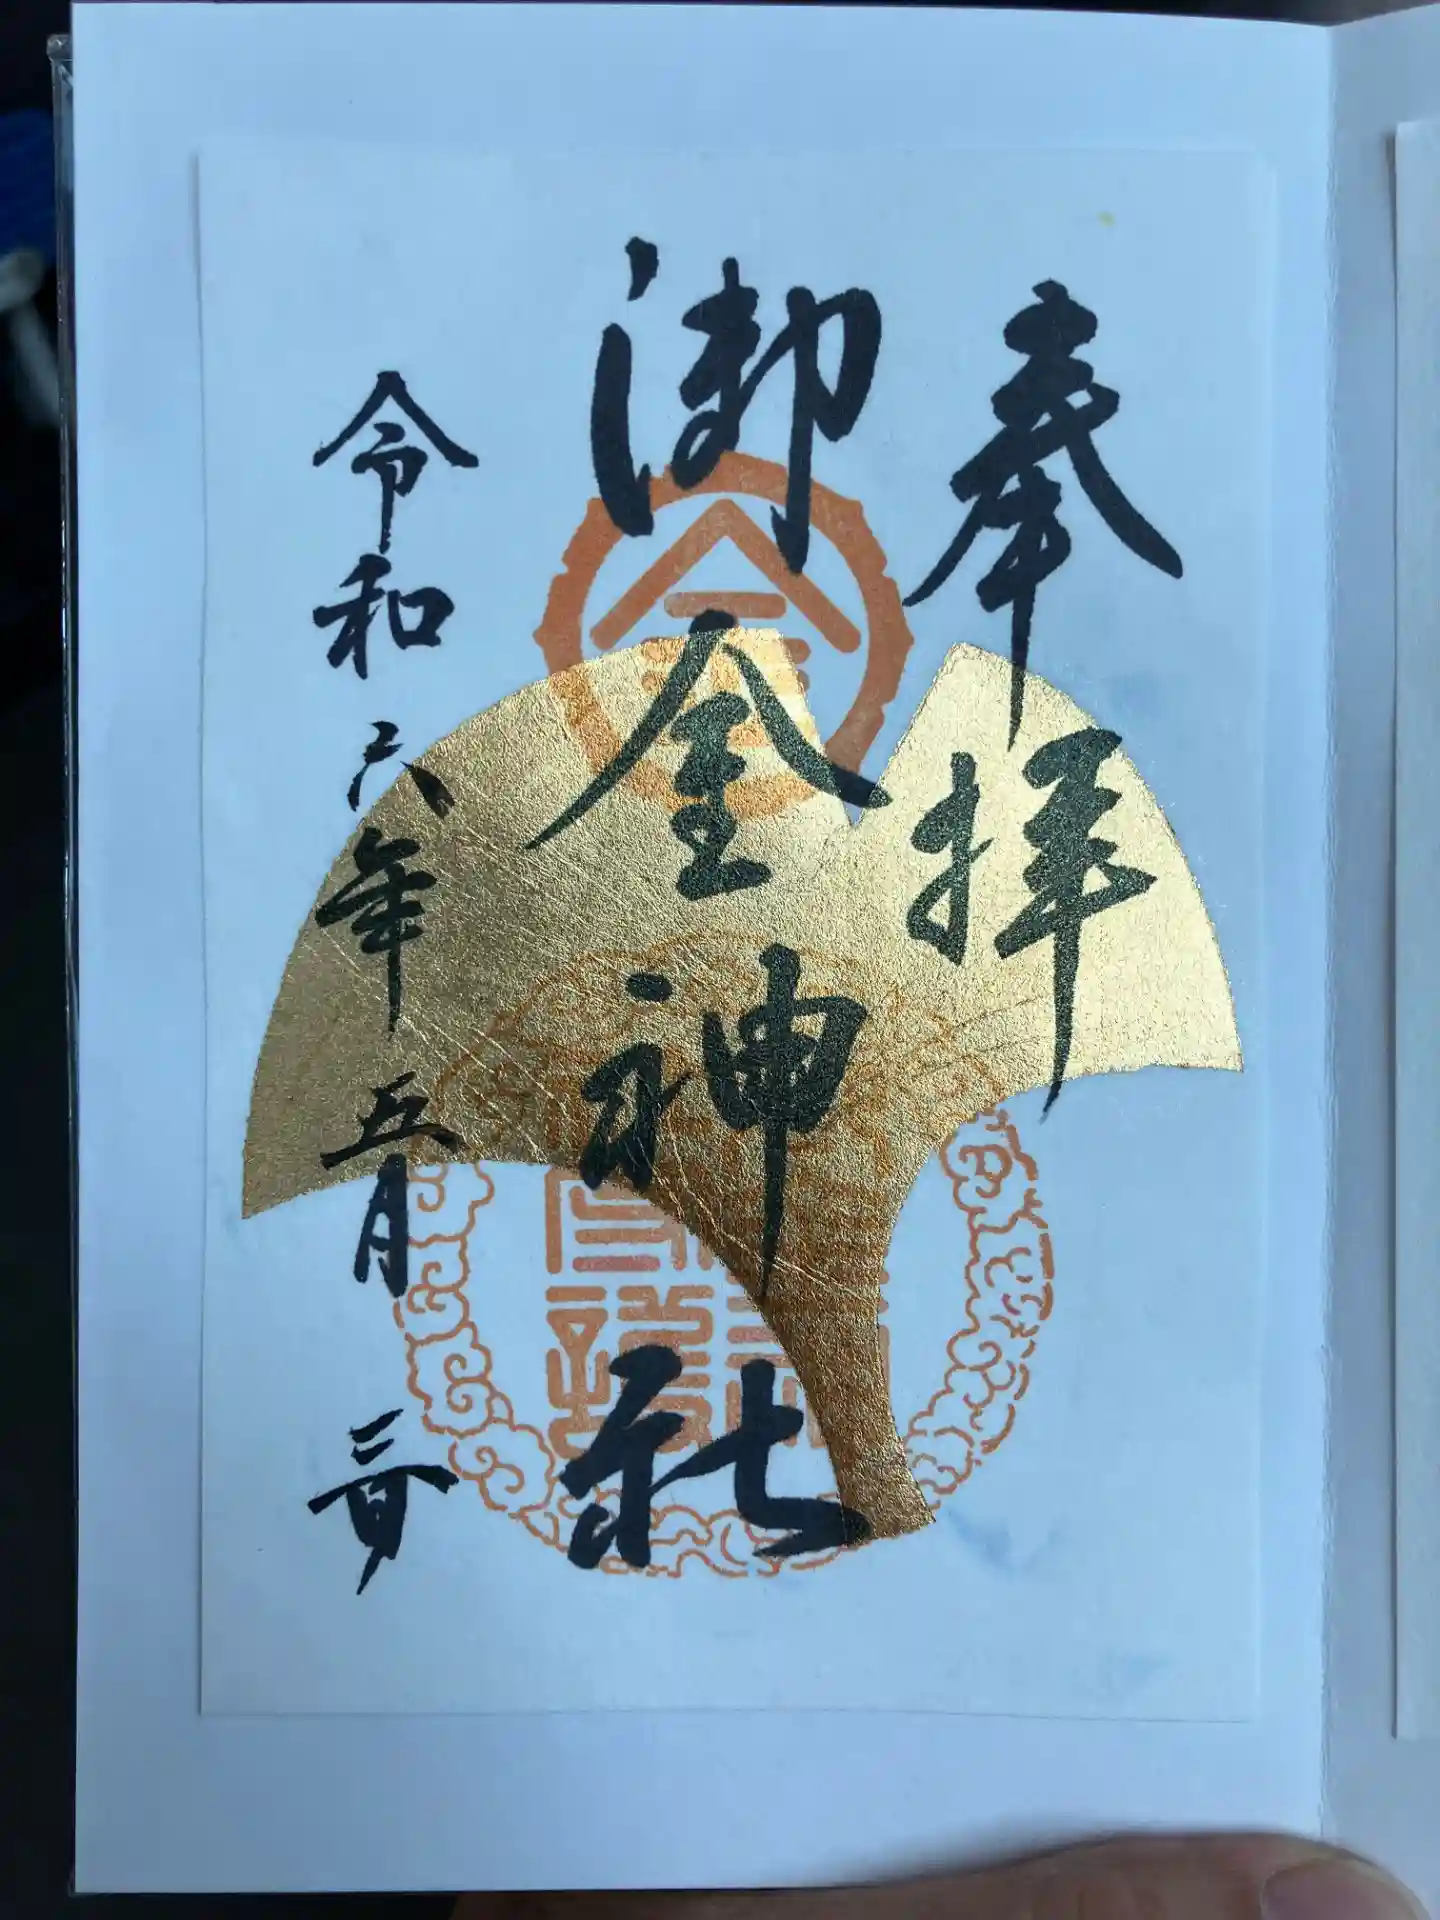 奉拝
御金神社
令和六年五月三日
金